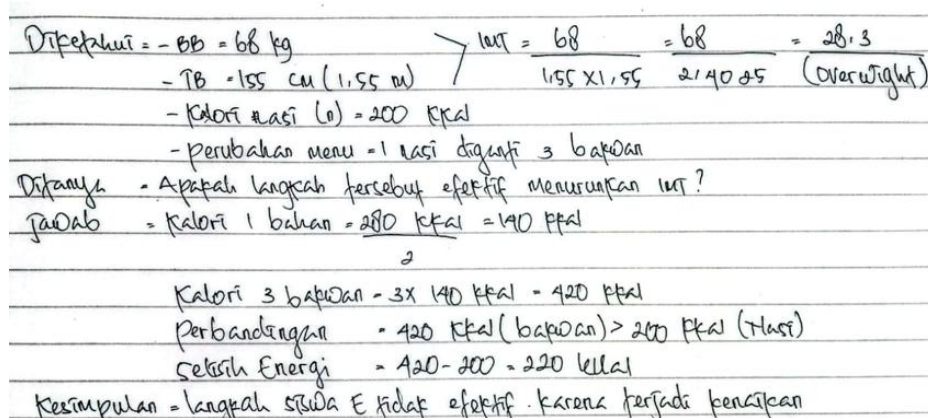 Diketahui = - BB = 68 kg
- TB = 155 cm (1,55 m)
IMT = 68 / 1,55 x 1,55 = 68 / 2,4025 = 28.3 (overwight)
- Kalori nasi (n) = 200 kkal
- perubahan menu = 1 nasi diganti 3 bakwan
Ditanya = Apakah langkah tersebut efektif menurunkan IMT?
Jawab = Kalori 1 bahan = 280 kkal / 2 = 140 kkal
Kalori 3 bakwan = 3x 140 kkal = 420 kkal
perbandingan = 420 kkal (bakwan) > 200 kkal (Nasi)
selisih Energi = 420 - 200 = 220 kkal
Kesimpulan = langkah siswa E tidak efektif. karena terjadi kenaikan